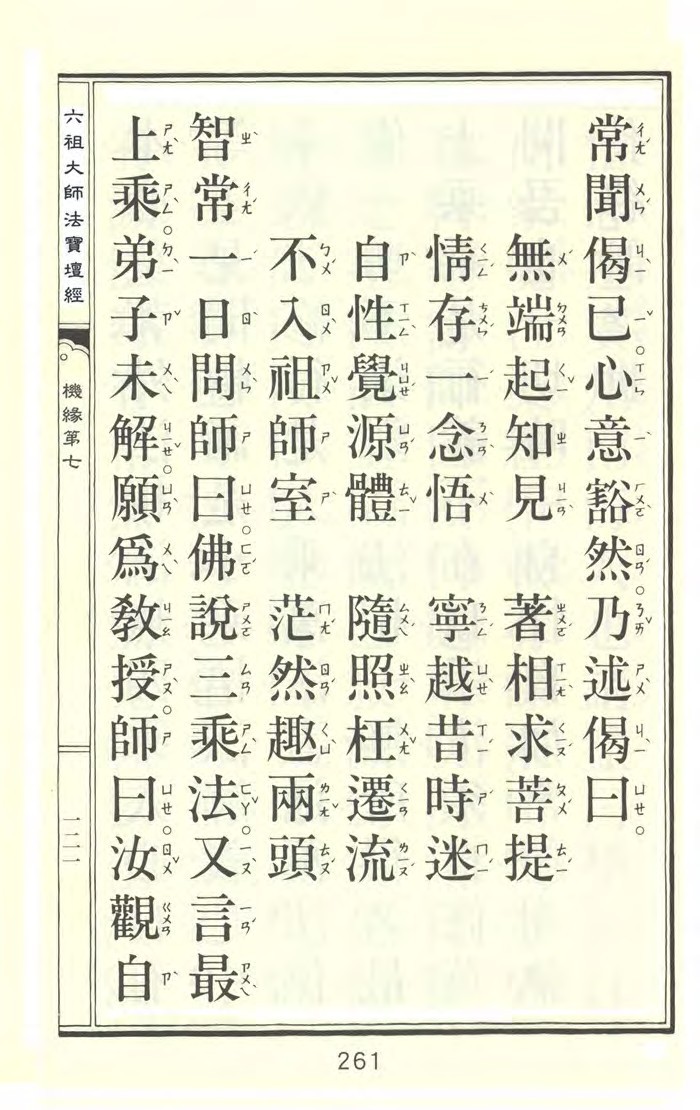 常聞偈已。心意豁然。乃述偈曰。
無端起知見 著相求菩提
情存一念悟 寧越昔時迷
自性覺源體 隨照枉遷流
不入祖師室 茫然趣兩頭
智常一日問師曰。佛說三乘法。又言最
上乘。弟子未解。願爲教授。師曰。汝觀自
六祖大師法寶壇經
機緣第七
一二一
261